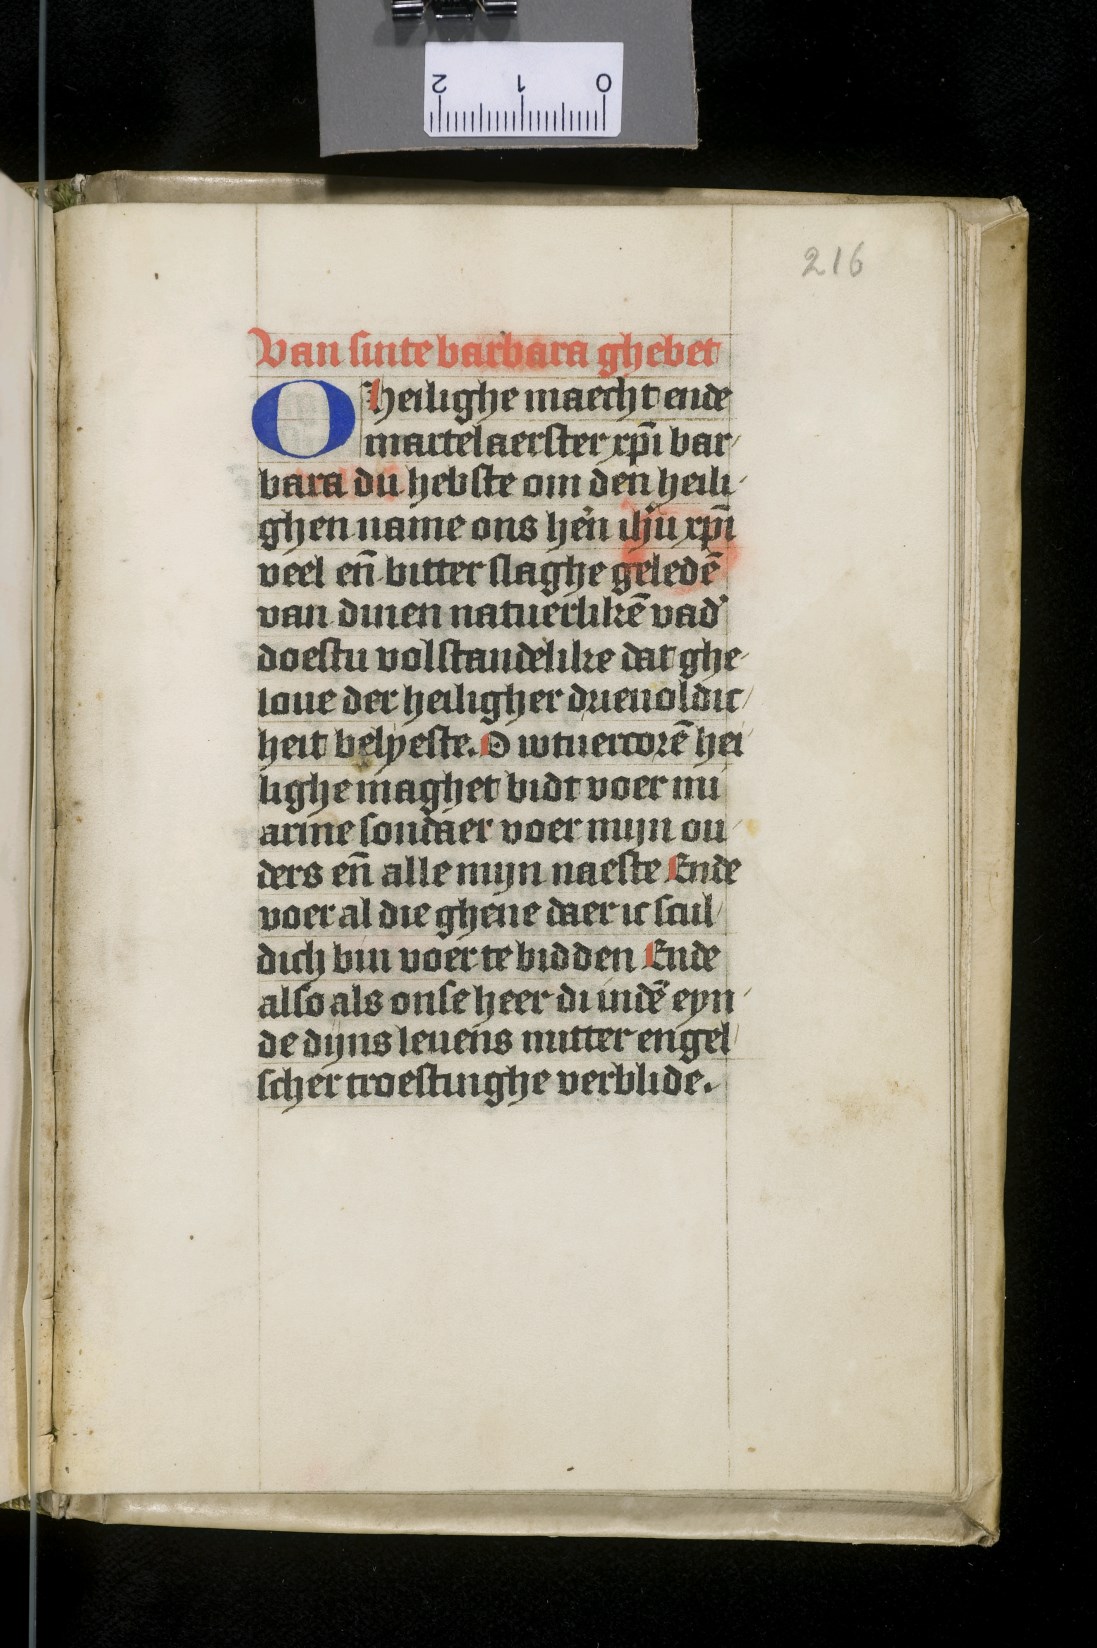 216
Van sinte barbara ghebet
O heilighe maecht ende
martelaerster xp̄i bar-
bara du hebste om den heili-
ghen name ons hen̄ ih̄u xp̄i
veel en̄ bitter slaghe geledē
van dinen natuerlikē vad'
doestu volstandelike dat ghe-
loue der heiligher drieuoldic/
heit belyeste. O wtuercorē hei
lighe maghet bidt voer mi
arme sondaer voer mijn ou/
ders en̄ alle mijn naeste Ende
voer al die ghene daer ic scul/
dich bin voer te bidden Ende
also als onse heer di indē eyn-
de dijns leuens mitter engel/
scher troestinghe verblide.
0 1 2